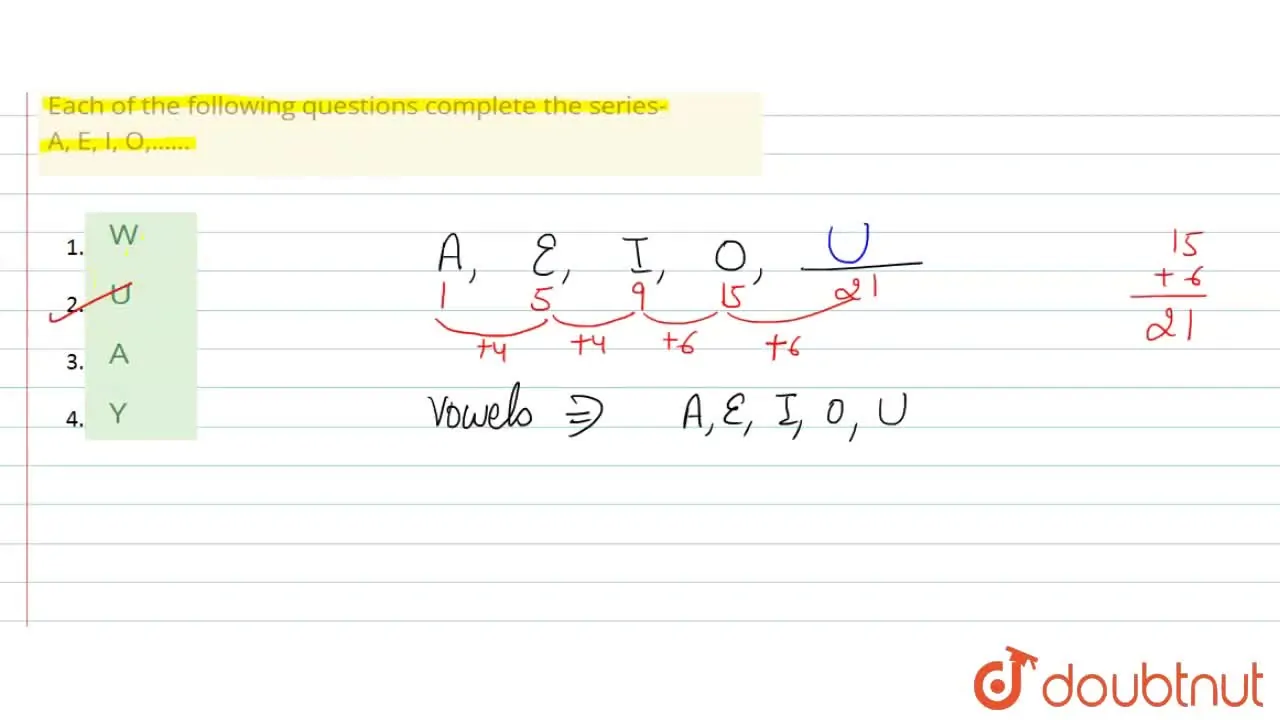 Each of the following questions complete the series-
A, E, I, O,......
1. W
2. U
3. A
4. Y
A, E, I, O, U
1 5 9 15 21
+4 +4 +6 +6
15
+ 6
21
Vowels ⇒ A, E, I, O, U
doubtnut